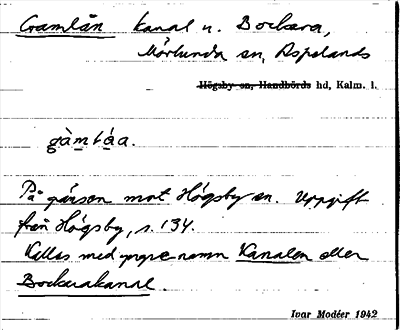 Gamlån kanal n. Bockara,
Mörlunda sn, Aspelands
Högsby sn, Handbörds hd, Kalm. l.
gàmlåa.
På gränsen mot Högsby sn. Uppgift
från Högsby, s. 134.
Kallas med yngre namn Kanalen eller
Bockarakanal.
Ivar Modéer 1942